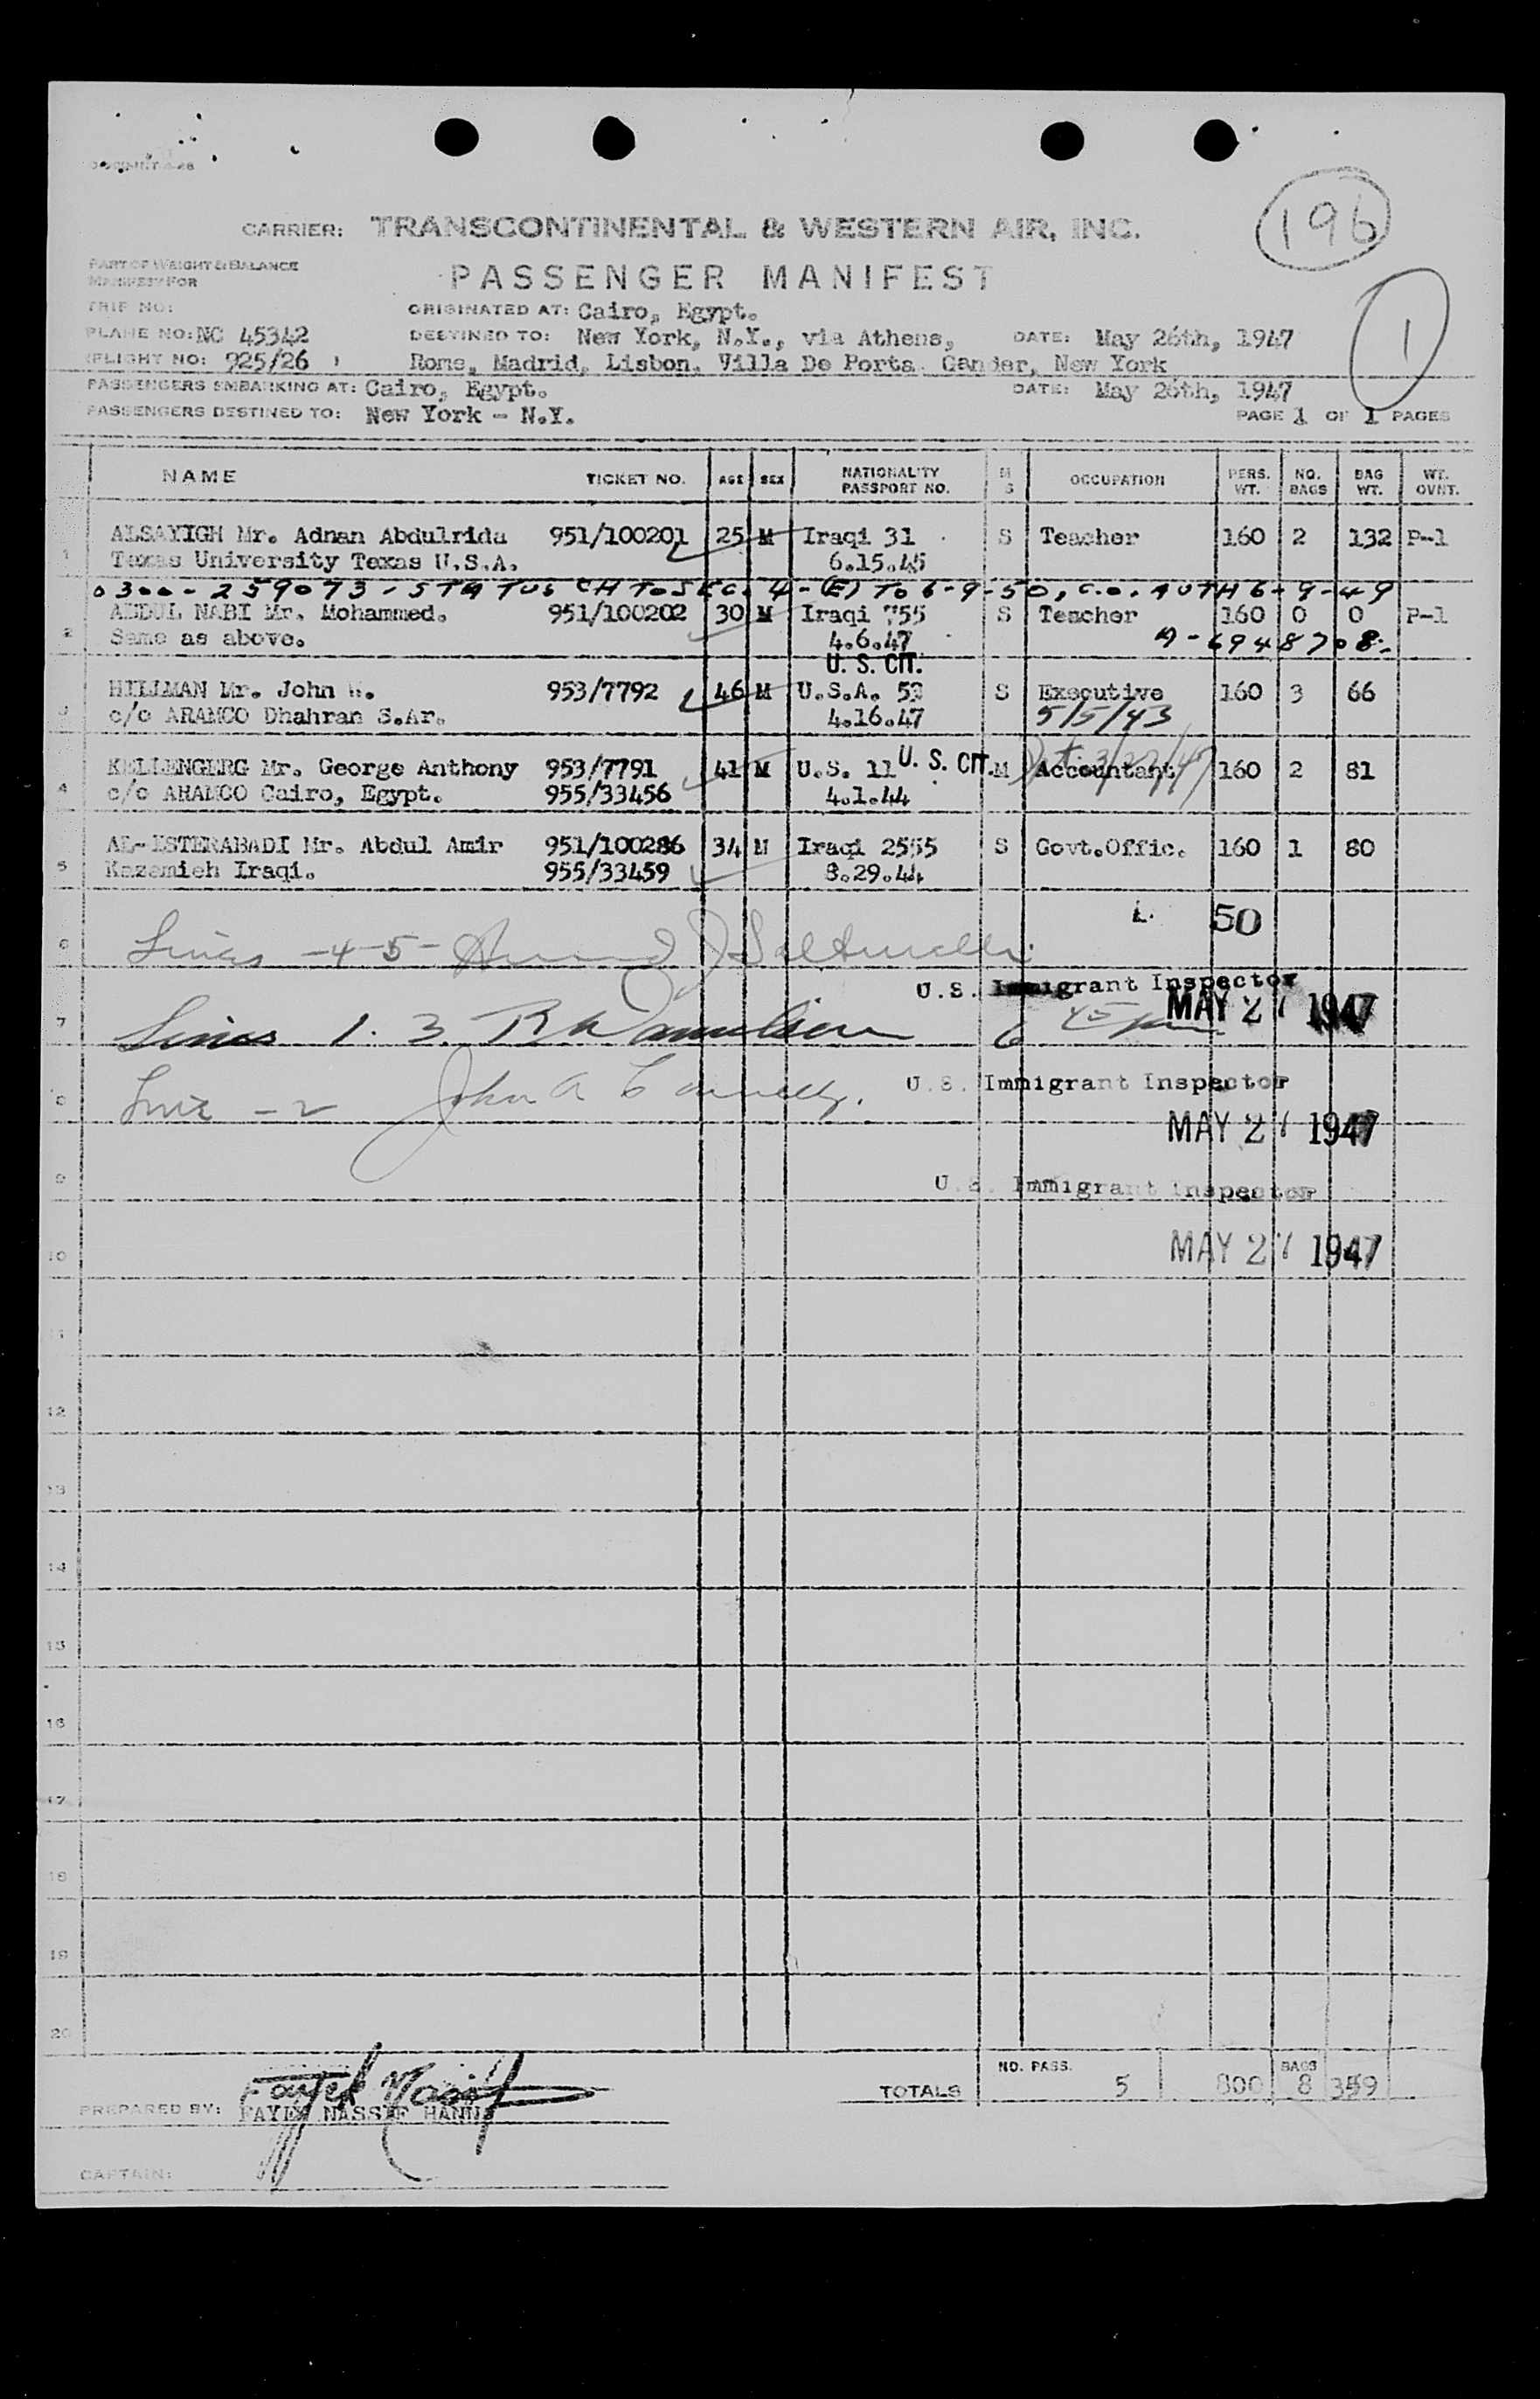 196
CARRIER: TRANSCONTINENTAL & WESTERN AIR, INC.
PART OF WEIGHT & BALANCE
MANIFEST FOR
PASSENGER MANIFEST
1
TRIP NO:
ORIGINATED AT: Cairo, Egypt.
PLANE NO: NC 45342
DESTINED TO: New York, N.Y., via Athens, DATE: May 26th, 1947
FLIGHT NO: 925/26
Rome, Madrid, Lisbon. Villa De Porta. Gander, New York
PASSENGERS EMBARKING AT: Cairo, Egypt. DATE: May 26th, 1947
PASSENGERS DESTINED TO: New York - N.Y. PAGE 1 OF 1 PAGES
NAME TICKET NO. AGE SEX NATIONALITY PASSPORT NO. M S OCCUPATION PERS. WT. NO. BAGS BAG WT. WT. OVHT.
1 ALSAYIGH Mr. Adnan Abdulrida 951/100201 25 M Iraqi 31 S Teacher 160 2 132 P-1
Texas University Texas U.S.A. 6.15.45
0300-259073-STATUS CH TO SEC. 4-(E) TO 6-9-50, C.O. AUTH 6-9-49
2 ABDUL NABI Mr. Mohammed. 951/100202 30 M Iraqi 755 S Teacher 160 0 0 P-1
Same as above. 4.6.47 A-6948708-
U. S. CIT.
3 HILLMAN Mr. John 953/7792 46 M U.S.A. S Executive 160 3 66
c/o ARAMCO Dhahran S.Ar. 4.16.47 5/5/43
4 KELLENGERG Mr. George Anthony 953/7791 41 M U.S. 11 U. S. CIT. M Accountant 160 2 81
c/o ARAMCO Cairo, Egypt. 955/33456 4.1.44
5 AL-ESTERABADI Mr. Abdul Amir 951/100286 34 M Iraqi 2555 S Govt.Offic. 160 1 80
Kazemieh Iraqi. 955/33459 8.29.44
50
6 Lines -4-5-
U.S. Immigrant Inspector
MAY 27 1947
7 Lines 1. 3.
U.S. Immigrant Inspector
8 Line -2 John A
MAY 27 1947
9
U.S. Immigrant Inspector
10
MAY 27 1947
11
12
13
14
15
16
17
18
19
20
TOTALS NO. PASS. 5 800 BAGS 8 359
PREPARED BY: FAYEK NASSIF HANNA
CAPTAIN: